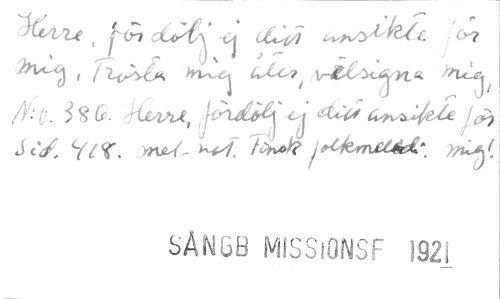 Herre, fördölj ej ditt ansikte för
mig, Trösta mig åter, välsigna mig,
N:o. 386. Herre, fördölj ej ditt ansikte för
Sid. 418. mel. not. Finsk folkmelodi. mig!
SÅNGB MISSIONSF 1921